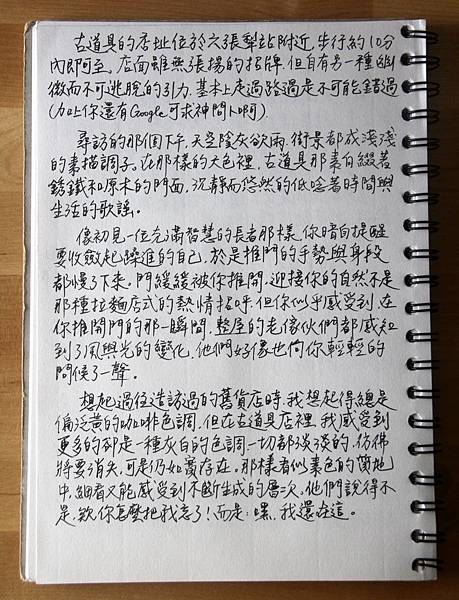 古道具的店址位於六張犁站附近,步行約10分
內即可至。店面雖無張揚的招牌,但自有另一種幽
微而不可逃脫的引力,基本上走過路過是不可能錯過
(加上你還有Google可求神問卜啊)。
尋訪的那個下午,天空陰灰欲雨,街景都成淺淺
的素描調子。在那樣的天色裡,古道具那素白綴著
銹鐵和原木的門面,沉靜而悠然的低唸著時間與
生活的歌謠。
像初見一位充滿智慧的長者那樣,你暗自提醒
要收斂起躁進的自己,於是推門的手勢與身段
都慢了下來。門緩緩被你推開,迎接你的自然不是
那種拉麵店式的熱情招呼,但你似乎感受到,在
你推開門的那一瞬間,整屋的老傢伙們都感知
到了風與光的變化,他們好像也向你輕輕的
問候了一聲。
想起過往造訪過的舊貨店時,我想起得總是
偏泛黃的咖啡色調,但在古道具店裡,我感受到
更多的卻是一種灰白的色調,一切都淡淡的,彷彿
將要消失,可是仍如舊存在。那樣看似素色的簡地
中,細看又能感受到不斷生成的層次。他們說得不
是,欸,你怎麼把我忘了!而是:嘿,我還在這。